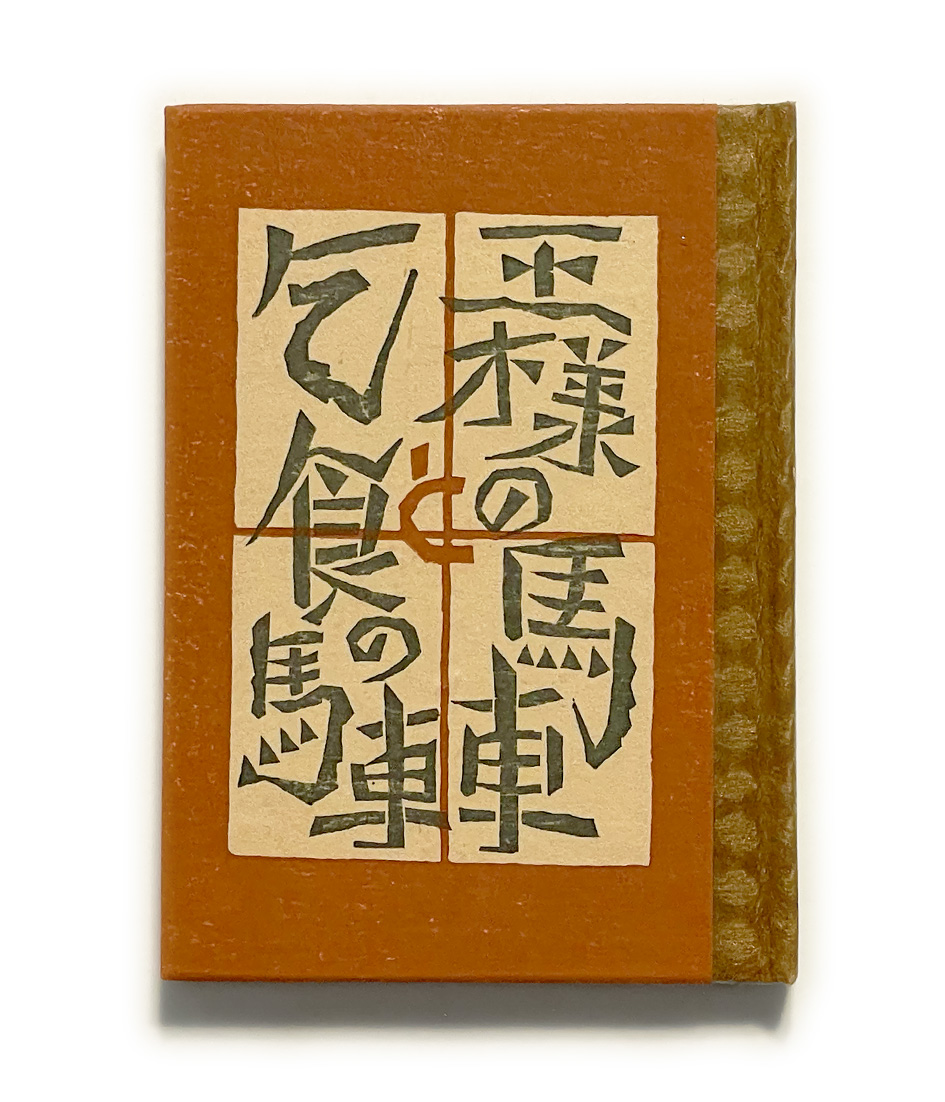 王様の馬車
と
乞食の馬車